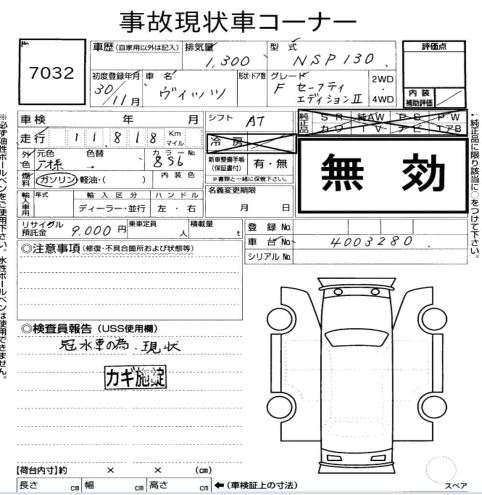 事故現状車コーナー
7032
車歴 (自家用以外は記入) 排気量 1,300 型式 NSP130
評価点
初度登録年月 30/11月 車名 ヴィッツ 形状・ドア数 グレード F セーフティエディションⅡ 2WD・4WD
内装補助評価
車検 年 月 シフト AT
純正品 SR 純AW PS PW
カワ TV ナビ エアB
走行 11,818 Km マイル 冷房
無効
外色 元色 色替 カラーNo. 836 新車整備手帳(保証書付) 有・無
※書類と一緒に保管下さい。
燃料 ガソリン・軽油・( ) 内装色
名義変更期限 月 日
輸入車用 年式 輸入区分 ディーラー・並行 ハンドル 左・右
リサイクル預託金 9,000円 乗車定員 人 積載量 t
登録No.
車台No. 4003280
シリアルNo.
◎注意事項(修復・不具合箇所および状態等)
◎検査員報告(USS使用欄)
冠水車の為、現状
カギ施錠
【荷台内寸】約 × × (cm)
長さ cm 幅 cm 高さ cm ←(車検証上の寸法)
スペア
※必ず油性ボールペンをご使用下さい。水性ボールペンは使用できません。
純正品に限り該当に○をつけて下さい。